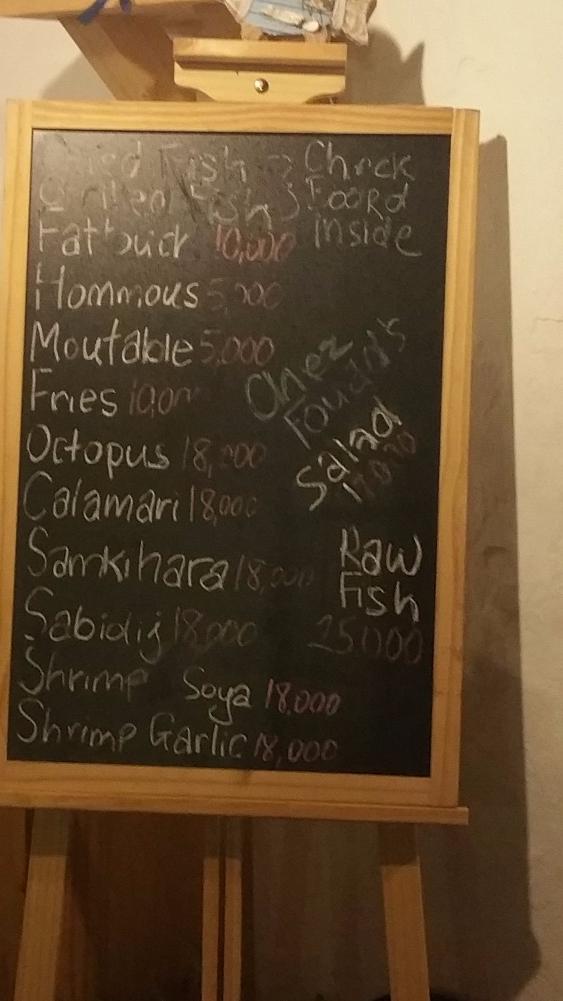 Fried Fish → Check
Grilled Fish } Board
Inside
Fattouch 10,000
Hommous 5,000
Moutable 5,000
Fries 10,000
Octopus 18,000
Calamari 18,000
Samkihara 18,000
Sabidij 18,000
Shrimp Soya 18,000
Shrimp Garlic 18,000
Chez
Fouad's
Salad
Raw
Fish
25000